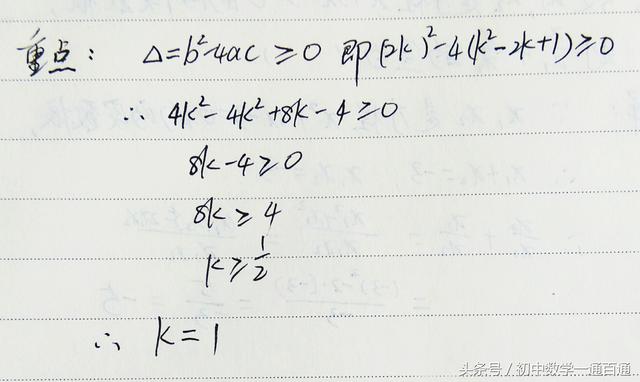 重点： Δ=b²-4ac ≥0 即(2k)²-4(k²-2k+1)≥0
∴ 4k²-4k²+8k-4≥0
8k-4≥0
8k≥4
k≥1/2
∴ k=1
头条号 / 初中数学一通百通